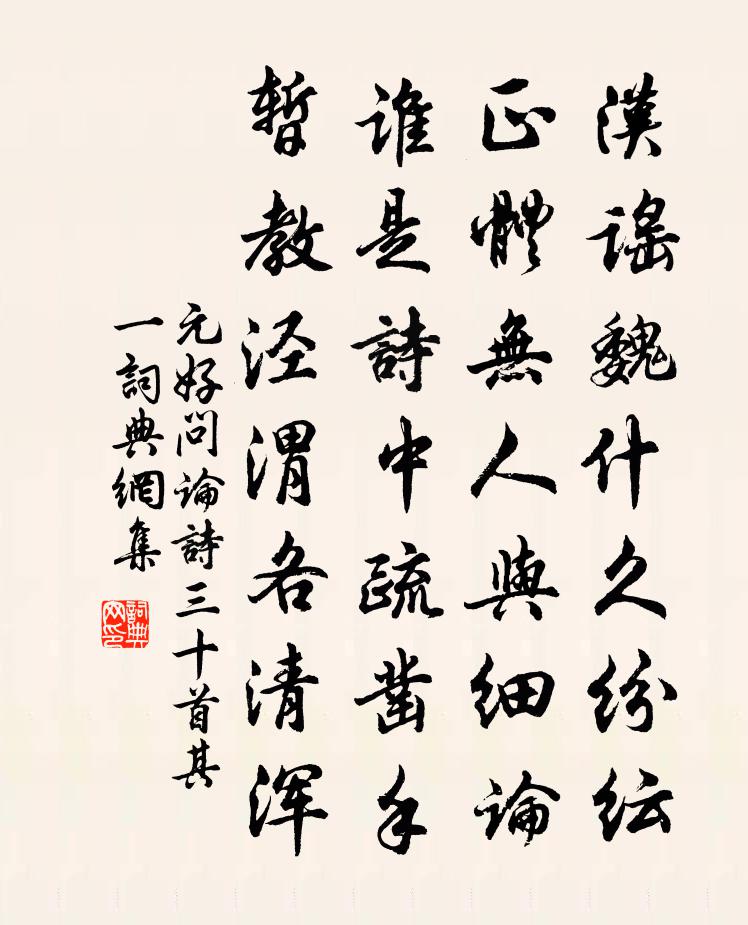 漢謠魏什久紛紜
正體無人與細論
誰是詩中疏鑿手
暫教泾渭各清浑
元好問論詩三十首其
一詞典網集
詞典
网印